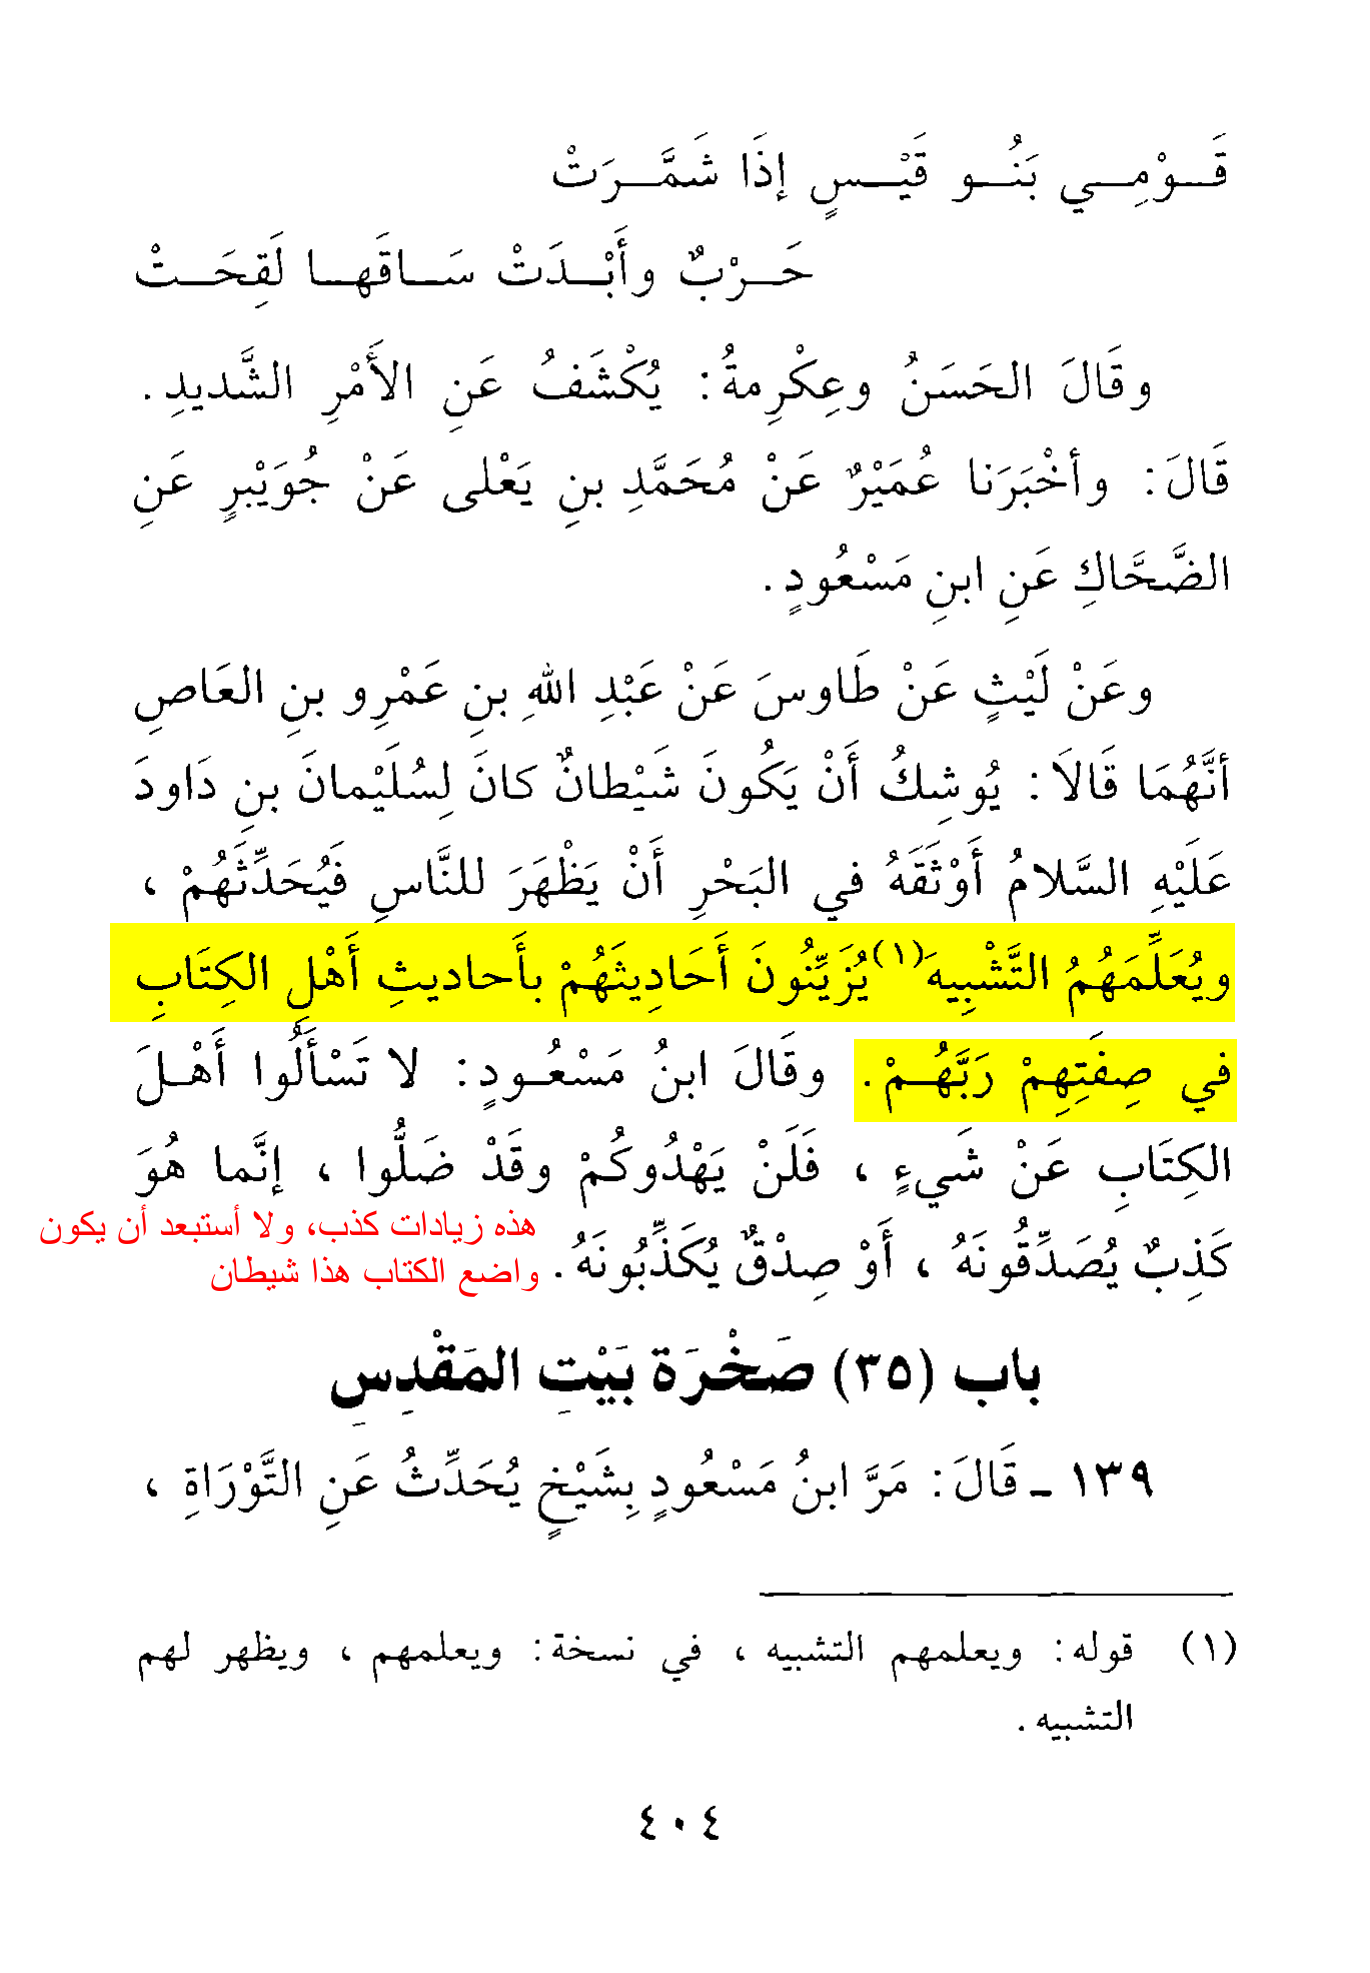 قَــوْمِــي بَنُــو قَيْــسٍ إذَا شَمَّــرَتْ
حَــرْبٌ وأَبْــدَتْ سَــاقَهــا لَقِحَــتْ
وقَالَ الحَسَنُ وعِكْرِمةُ: يُكْشَفُ عَنِ الأَمْرِ الشَّديدِ.
قَالَ: وأخْبَرَنا عُمَيْرٌ عَنْ مُحَمَّدِ بنِ يَعْلى عَنْ جُوَيْبرٍ عَنِ
الضَّحَّاكِ عَنِ ابنِ مَسْعُودٍ.
وعَنْ لَيْثٍ عَنْ طَاوسَ عَنْ عَبْدِ اللهِ بنِ عَمْرِو بنِ العَاصِ
أنَّهُمَا قَالاَ: يُوشِكُ أَنْ يَكُونَ شَيْطانٌ كانَ لِسُلَيْمانَ بنِ دَاودَ
عَلَيْهِ السَّلامُ أَوْثَقَهُ في البَحْرِ أَنْ يَظْهَرَ للنَّاسِ فَيُحَدِّثَهُمْ ،
ويُعَلِّمَهُمُ التَّشْبِيهَ(١) يُزَيِّنُونَ أَحَادِيثَهُمْ بأَحاديثِ أَهْلِ الكِتَابِ
في صِفَتِهِمْ رَبَّهُــمْ. وقَالَ ابنُ مَسْعُــودٍ: لا تَسْأَلُوا أَهْــلَ
الكِتَابِ عَنْ شَيءٍ ، فَلَنْ يَهْدُوكُمْ وقَدْ ضَلُّوا ، إنَّما هُوَ
هذه زيادات كذب، ولا أستبعد أن يكون
واضع الكتاب هذا شيطان
كَذِبٌ يُصَدِّقُونَهُ ، أَوْ صِدْقٌ يُكَذِّبُونَهُ.
باب (٣٥) صَخْرَة بَيْتِ المَقْدِسِ
١٣٩ ـ قَالَ: مَرَّ ابنُ مَسْعُودٍ بِشَيْخٍ يُحَدِّثُ عَنِ التَّوْرَاةِ ،
(١) قوله: ويعلمهم التشبيه ، في نسخة: ويعلمهم ، ويظهر لهم
التشبيه.
٤٠٤